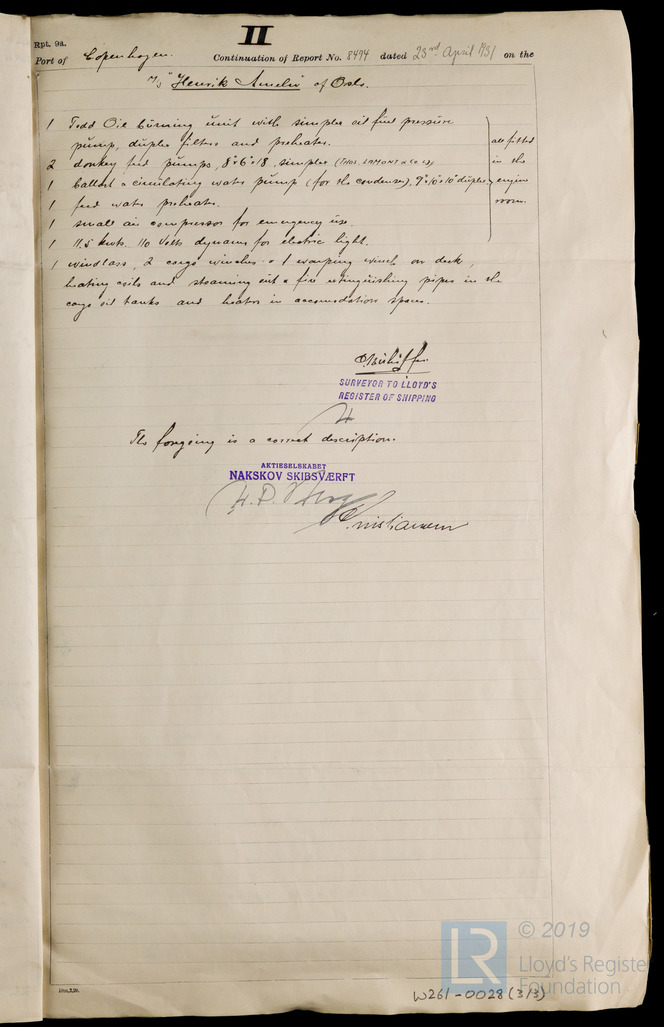 II
Rpt. 9a.
Port of Copenhagen. Continuation of Report No. 8494 dated 23rd April 1931 on the
M/S "Henrik Ameln" of Oslo.
1 Todd Oil burning unit with simplex oil fuel pressure
pump, duplex filters and preheater.
2 donkey feed pumps, 8"×6"×18", simplex (THOS. LAMONT & Co Ld)
1 ballast & circulating water pump (for the condenser), 9"×10"×10" duplex.
1 feed water preheater.
1 small air compressor for emergency use
1 11.5 kwts. 110 volts dynamo for electric light.
all fitted
in the
engine
room.
1 windlass, 2 cargo winches & 1 warping winch on deck,
heating coils and steaming out & fire extinguishing pipes in the
cargo oil tanks and heaters in accomodation spaces.
SURVEYOR TO LLOYD'S
REGISTER OF SHIPPING
The forgoing is a correct description.
AKTIESELSKABET
NAKSKOV SKIBSVÆRFT
Christiansen
© 2019
LR
Lloyd's Register
Foundation
W261-0028(3/3)